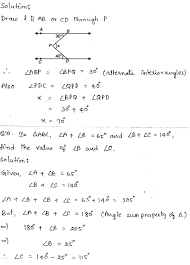 Solution:
Draw l || AB or CD through P
A B
30°
P
40°
C D
∴ ∠ABP = ∠BPQ = 30° (alternate interior angles)
Also ∠PDC = ∠QPD = 40°
x = ∠BPQ + ∠QPD
= 30° + 40°
x = 70°
Q10. In ΔABC, ∠A + ∠B = 65° and ∠B + ∠C = 140°,
find the value of ∠B and ∠C.
Solution:
Given, ∠A + ∠B = 65°
∠B + ∠C = 140°
∠A + ∠B + ∠B + ∠C = 65° + 140° = 205°
But, ∠A + ∠B + ∠C = 180° (Angle sum property of Δ)
⇒ 180° + ∠B = 205°
⇒ ∠B = 25°
∴ ∠C = 140° - 25° = 115°